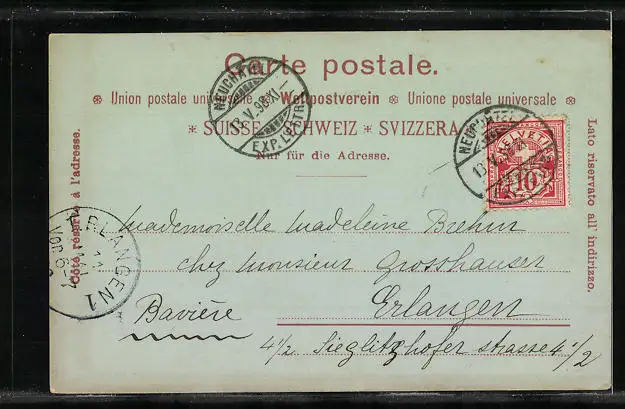 Carte postale.
Union postale universelle Weltpostverein Unione postale universale
SUISSE SCHWEIZ SVIZZERA
Nur für die Adresse.
Côté réservé à l'adresse.
Lato riservato all' indirizzo.
NEUCHATEL
13. V. 98. XI
EXP. LETTR.
NEUCHATEL
13. V. 98
HELVETIA
10
ERLANGEN 1
Mademoiselle Madeleine Brehm
chez Monsieur Grosshauser
Erlangen
Bavière
4 1/2 Sieglitzhofer strasse 4 1/2